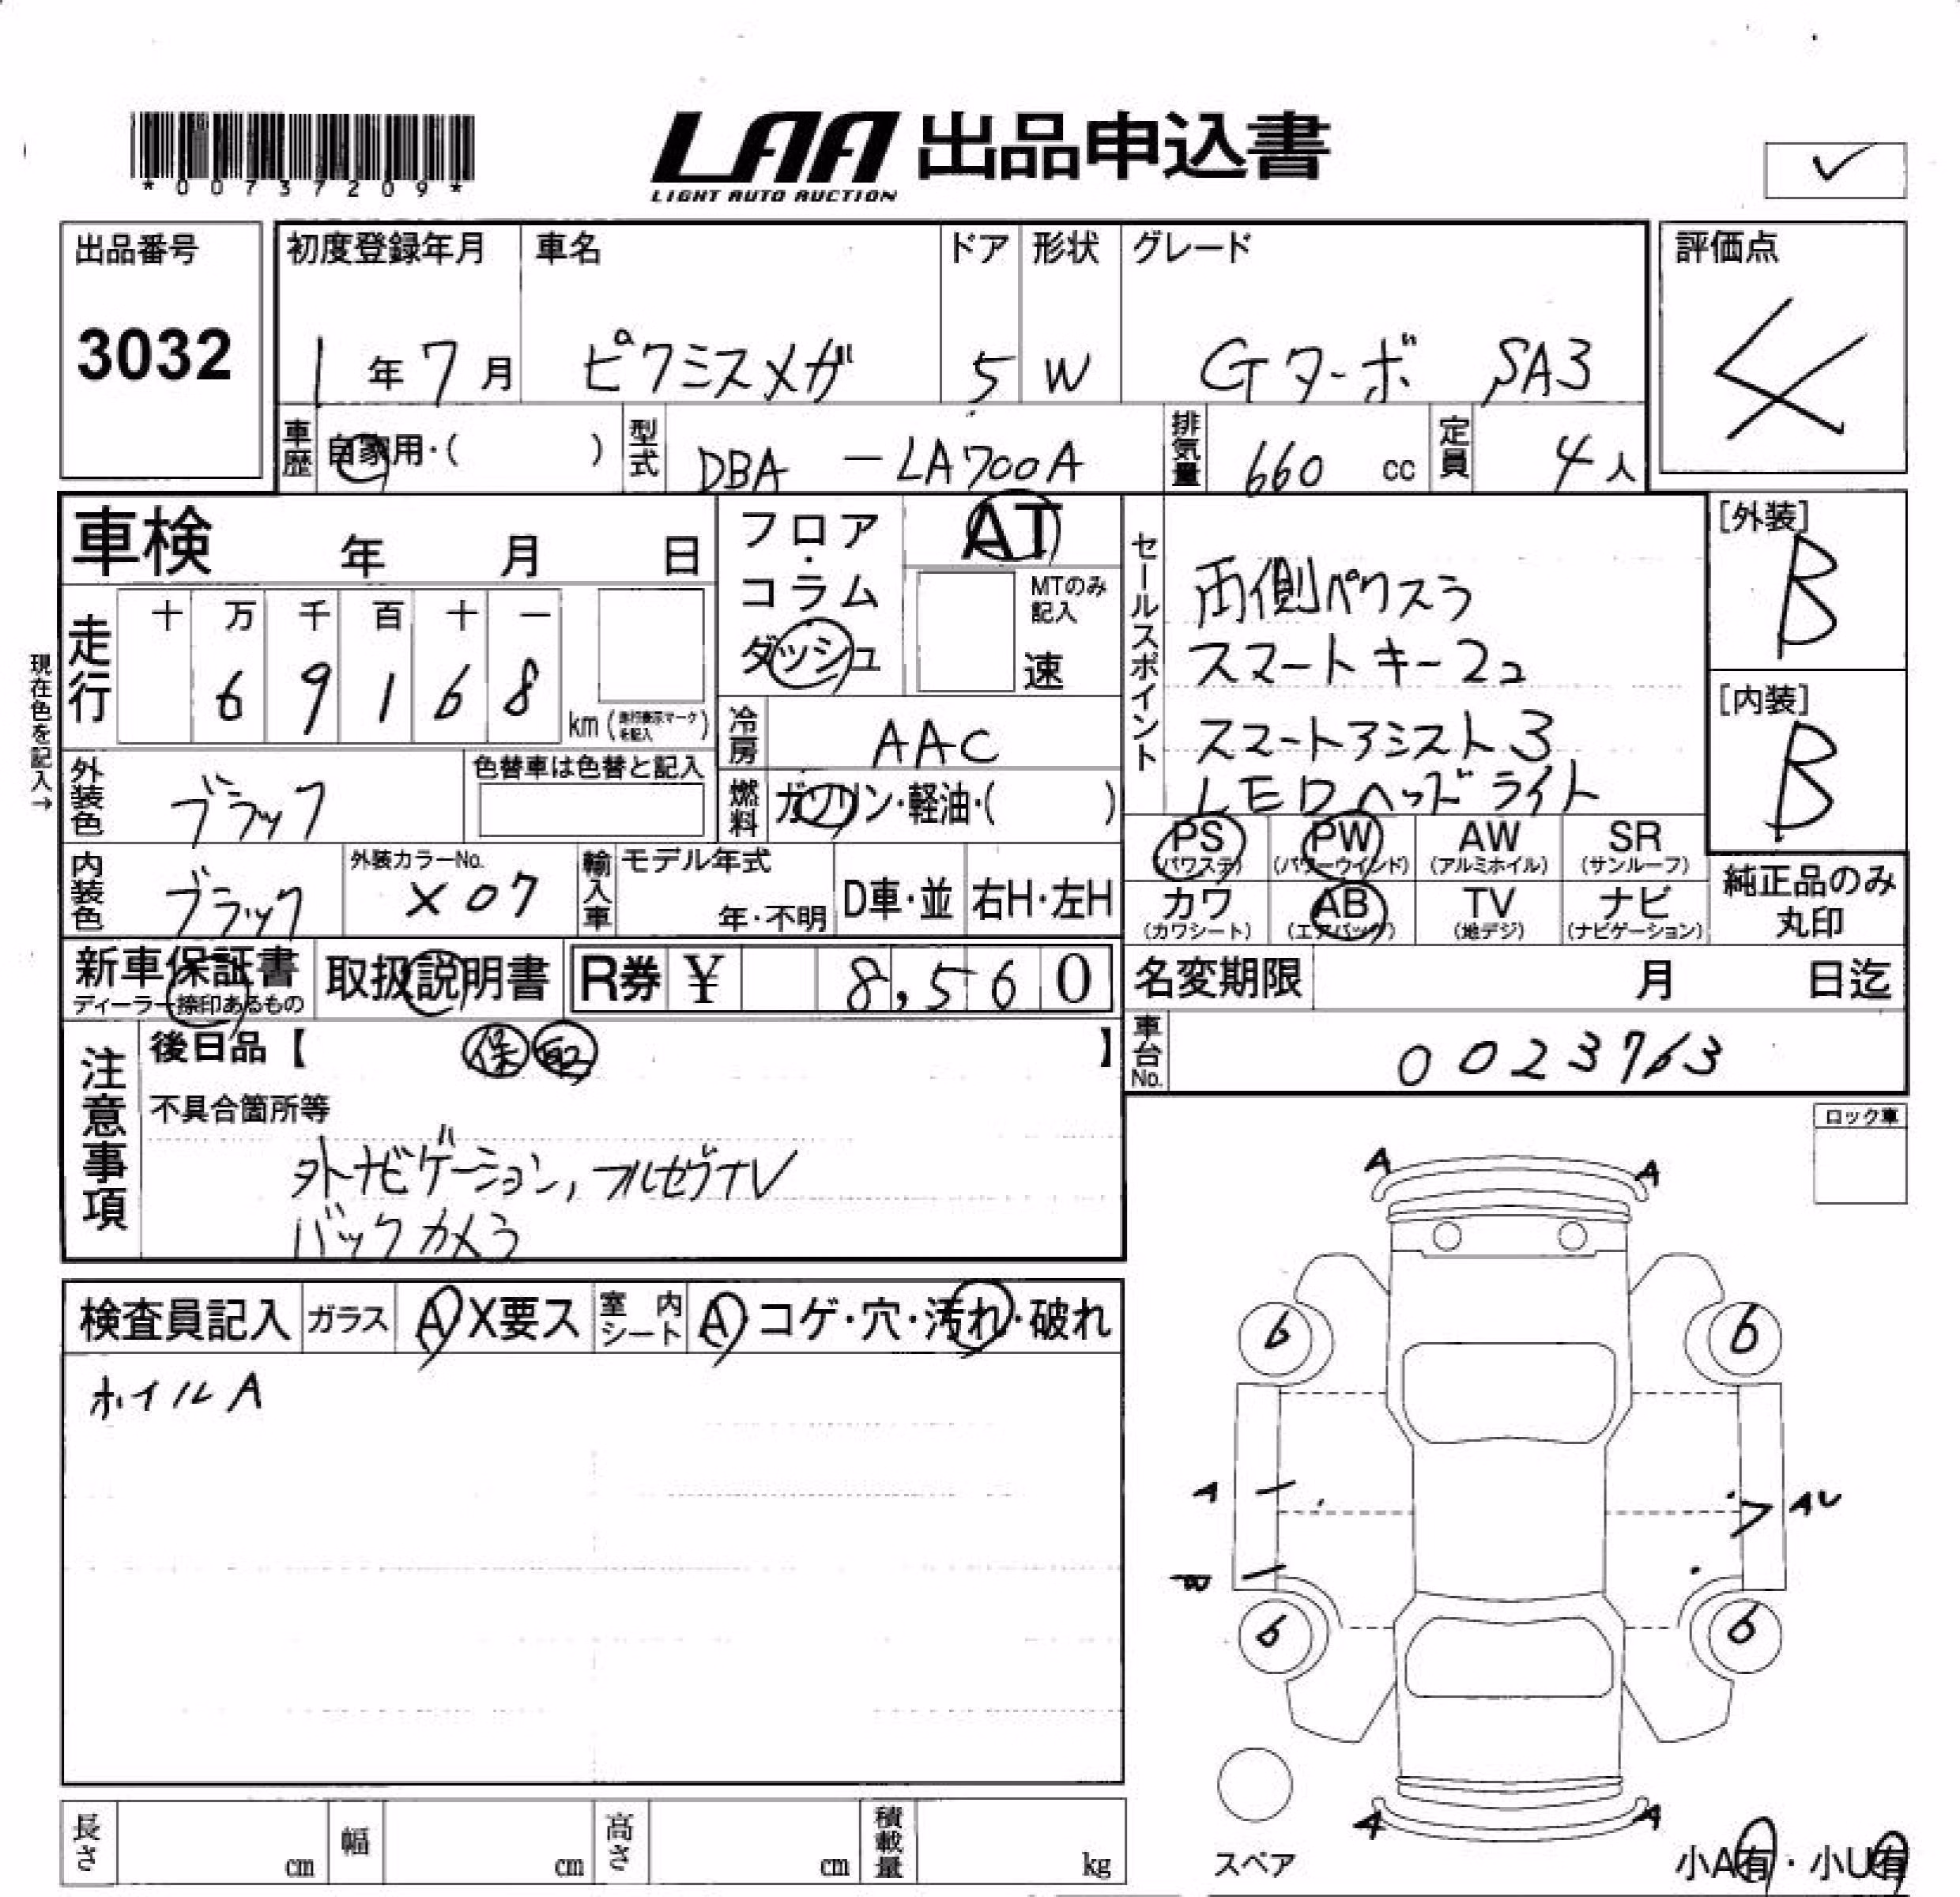 *00737209*
LAA 出品申込書
LIGHT AUTO AUCTION
✓
出品番号
3032
初度登録年月
1年7月
車名
ピクミスメガ
ドア
5
形状
W
グレード
Gターボ SA3
評価点
4
車歴
自家用・( )
型式
DBA - LA700A
排気量
660 cc
定員
4人
車検 年 月 日
フロア・コラム
ダッシュ
AT
MTのみ記入
速
セールスポイント
両側パワスラ
スマートキー2コ
スマートアシスト3
LEDヘッドライト
[外装]
B
[内装]
B
現在色を記入→
走行
十 万 千 百 十 一
6 9 1 6 8
km(走行表示マークを記入)
冷房
AAC
外装色
ブラック
色替車は色替と記入
燃料
ガソリン・軽油・( )
PS
(パワステ)
PW
(パワーウインド)
AW
(アルミホイル)
SR
(サンルーフ)
内装色
ブラック
外装カラーNo.
X07
輸入車
モデル年式
年・不明
D車・並
右H・左H
カワ
(カワシート)
AB
(エアバッグ)
TV
(地デジ)
ナビ
(ナビゲーション)
純正品のみ
丸印
新車保証書
ディーラー捺印あるもの
取扱説明書
R券 ¥ 8,560
名変期限 月 日迄
注意事項
後日品【 保 取 】
車台No.
0023763
不具合箇所等
外ナビゲーション, フルセグTV
バックカメラ
ロック車
A A
検査員記入
ガラス
A X要ス
室内シート
A・コゲ・穴・汚れ・破れ
ホイルA
6 6
A AU
6 6
スペア
A A
小A有・小U有
長さ cm
幅 cm
高さ cm
積載量 kg